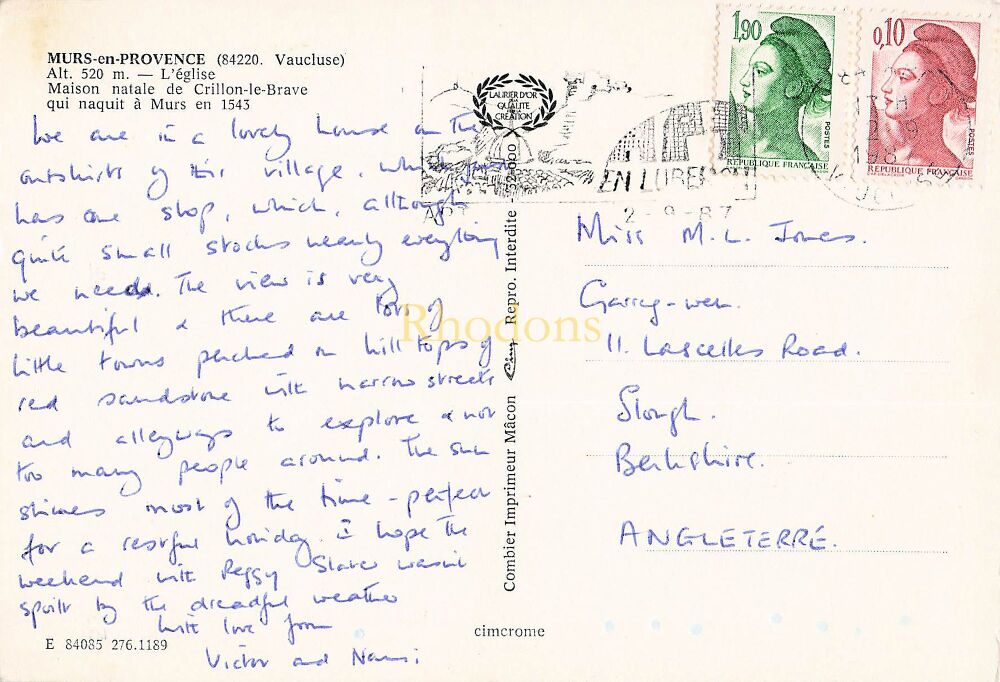 MURS-en-PROVENCE (84220. Vaucluse)
Alt. 520 m. — L'église
Maison natale de Crillon-le-Brave
qui naquit à Murs en 1543
We are in a lovely house on the
outskirts of this village, which just
has one shop, which, although
quite small stocks nearly everything
we needs. The view is very
beautiful & there are lots of
little towns perched on hill tops of
red sandstone with narrow streets
and alleyways to explore & not
too many people around. The sun
shines most of the time - perfect
for a restful holiday. I hope the
weekend with Peggy Slater wasn't
spoilt by the dreadful weather
With love from
Victor and
E 84085 276.1189
LAURIER D'OR
DE LA
QUALITÉ
CRÉATION
Combier Imprimeur Mâcon Cim Repro. Interdite - 52-000
cimcrome
EN LUBERON
APT
2-9-87
1,90
POSTES
RÉPUBLIQUE FRANÇAISE
0,10
POSTES
RÉPUBLIQUE FRANÇAISE
Miss M. L. Jones.
Garreg-wen.
11. Lascelles Road.
Slough.
Berkshire.
ANGLETERRE.
Rhodons